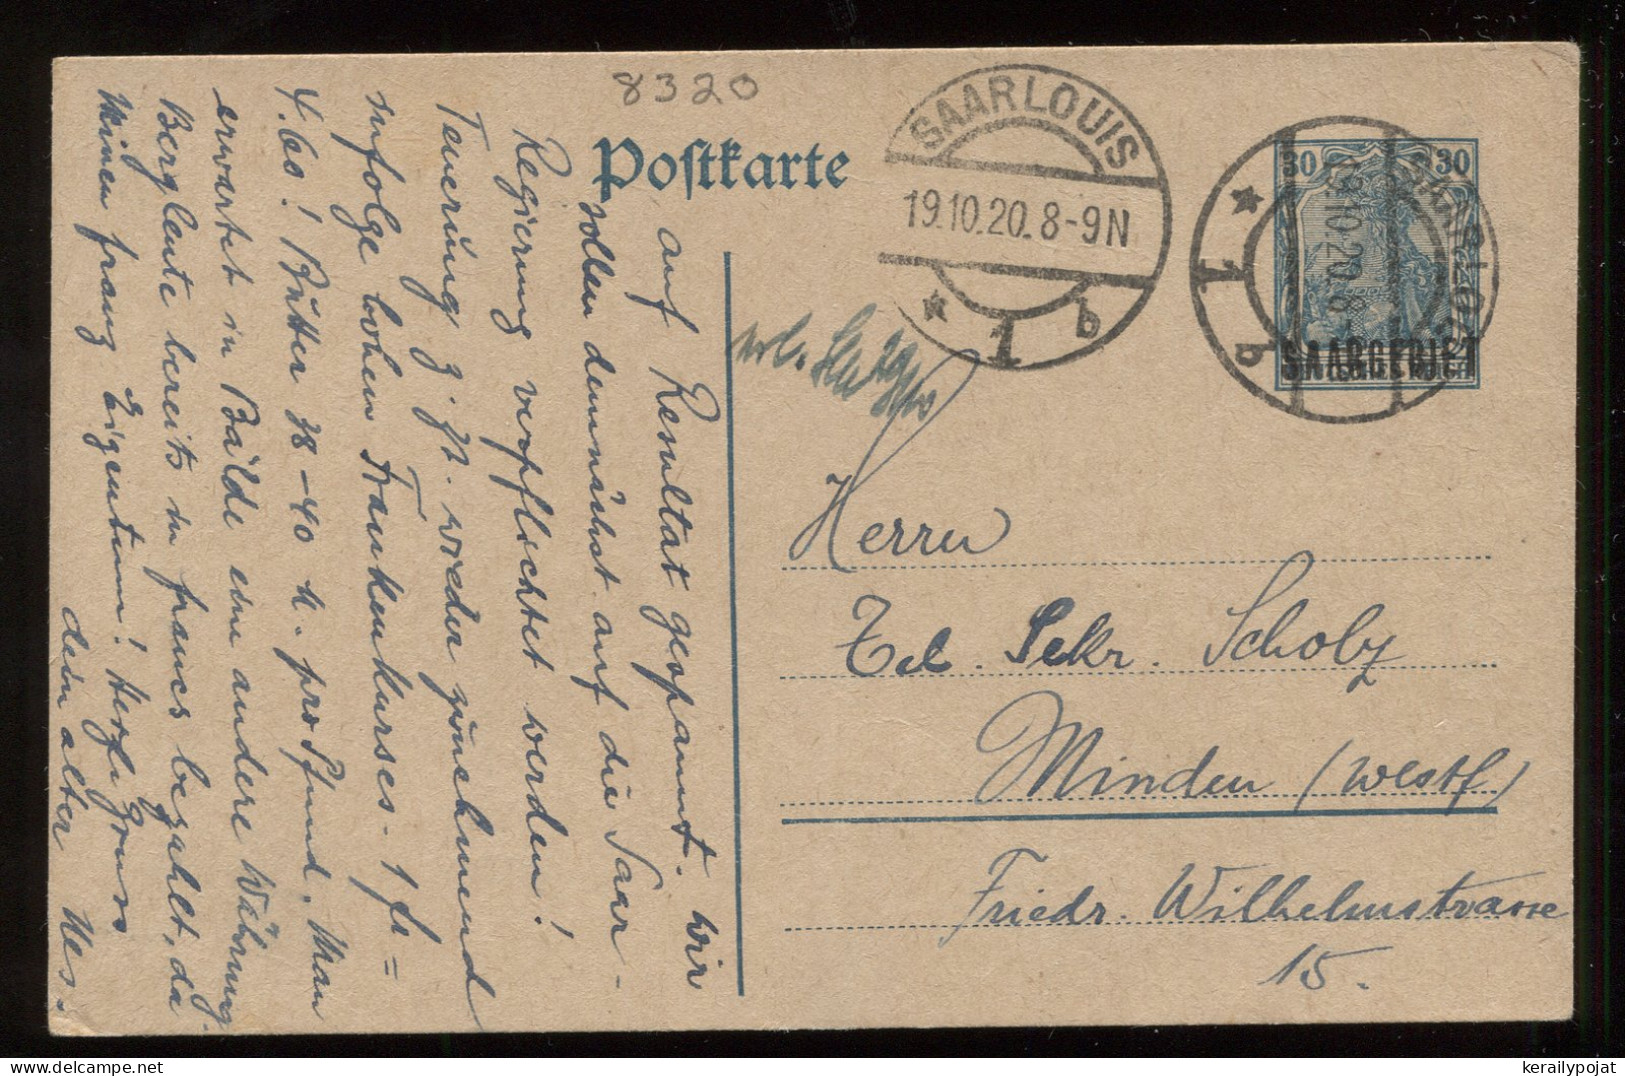 8320
Postkarte
SAARLOUIS
19.10.20.8-9N
* 1 b
30 30
SAARGEBIET
SAARLOUIS
19.10.20.8-9N
* 1 b
Herrn
Tel. Sekr. Scholz
Minden (Westf)
Friedr. Wilhelmstrasse
15.
auf Resultat gespannt. Wir
sollen demnächst auf die Saar-
Regierung verpflichtet werden!
Teuerung z. Zt. wieder zunehmend
infolge hohen Frankenkurses. 1 fr =
4.60! Butter 38-40 M. pro Pfund. Man
erwartet in Bälde eine andere Währung.
Bergleute bereits in francs bezahlt, da
Minen franz. Eigentum! Herzl. Gruss
dein alter
kerailypojat
www.delcampe.net